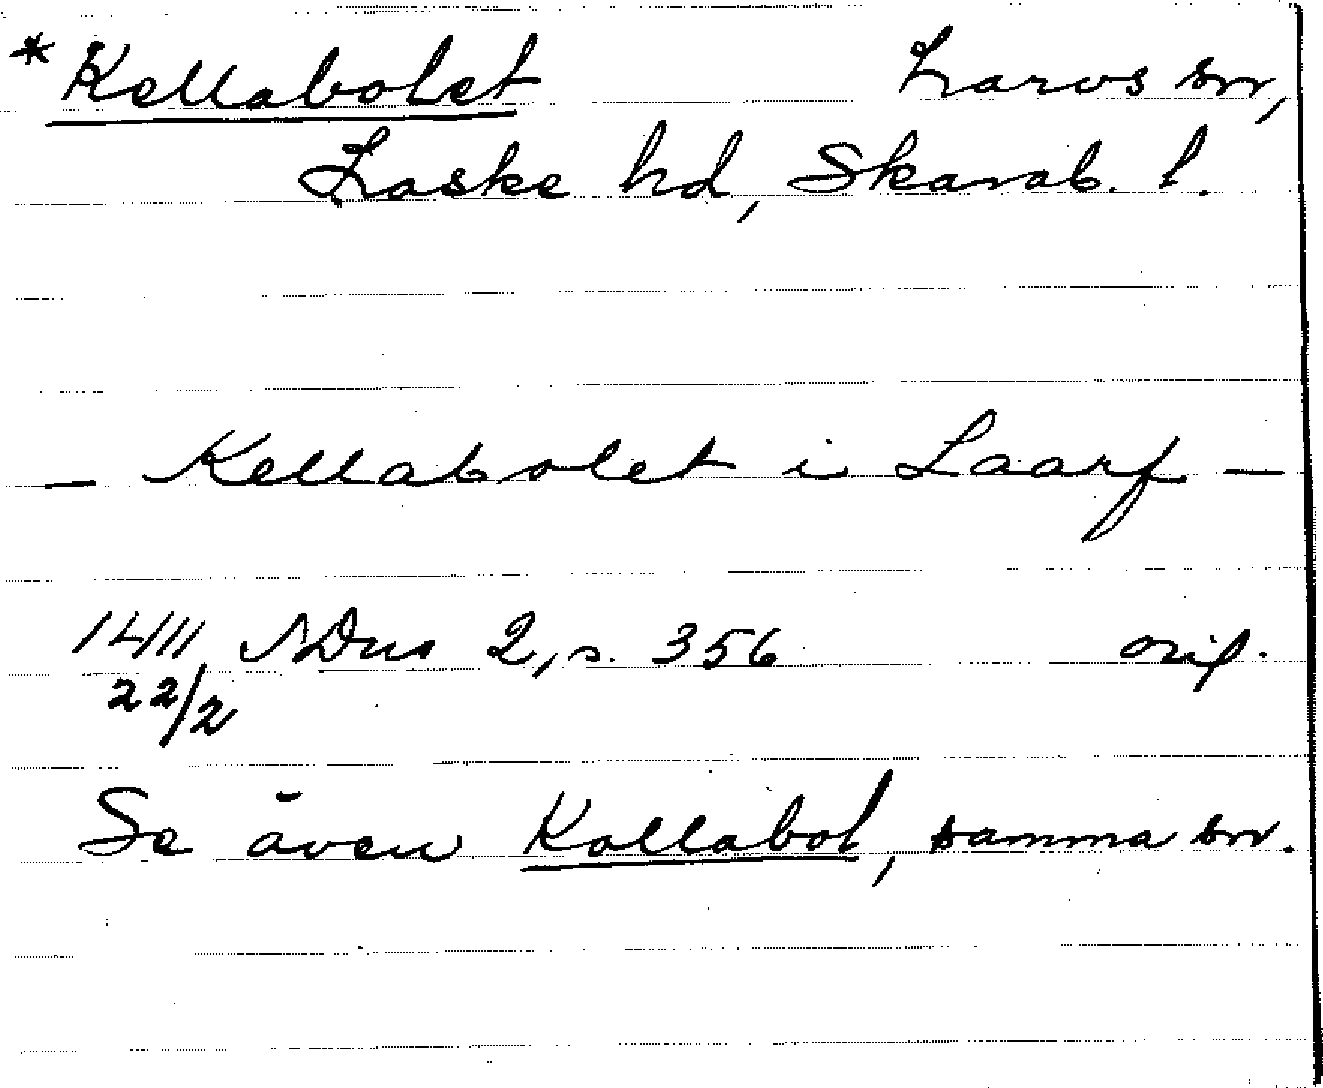 * Kellabolet Larvs sn,
Laske hd, Skarab. l.
- Kellabolet i Laarf -
1411 NDns 2, s. 356 orig.
22/2
Se även Kollabol, samma sn.